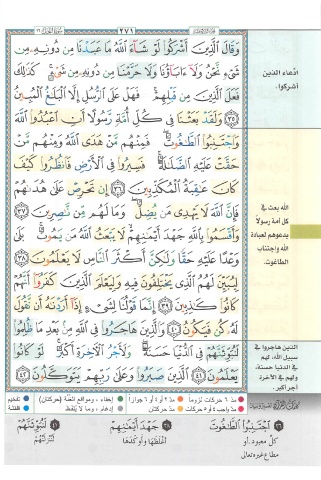 ٢٧١
وَقَالَ الَّذِينَ أَشْرَكُوا لَوْ شَاءَ اللَّهُ مَا عَبَدْنَا مِن دُونِهِ مِن
شَيْءٍ نَّحْنُ وَلَا ءَابَاؤُنَا وَلَا حَرَّمْنَا مِن دُونِهِ مِن شَيْءٍ كَذَٰلِكَ
فَعَلَ الَّذِينَ مِن قَبْلِهِمْ فَهَلْ عَلَى الرُّسُلِ إِلَّا الْبَلَاغُ الْمُبِينُ
٣٥ وَلَقَدْ بَعَثْنَا فِي كُلِّ أُمَّةٍ رَّسُولًا أَنِ اعْبُدُوا اللَّهَ
وَاجْتَنِبُوا الطَّاغُوتَ فَمِنْهُم مَّنْ هَدَى اللَّهُ وَمِنْهُم مَّنْ
حَقَّتْ عَلَيْهِ الضَّلَالَةُ فَسِيرُوا فِي الْأَرْضِ فَانظُرُوا كَيْفَ
كَانَ عَاقِبَةُ الْمُكَذِّبِينَ ٣٦ إِن تَحْرِصْ عَلَىٰ هُدَاهُمْ
فَإِنَّ اللَّهَ لَا يَهْدِي مَن يُضِلُّ وَمَا لَهُم مِّن نَّاصِرِينَ ٣٧
وَأَقْسَمُوا بِاللَّهِ جَهْدَ أَيْمَانِهِمْ لَا يَبْعَثُ اللَّهُ مَن يَمُوتُ بَلَىٰ
وَعْدًا عَلَيْهِ حَقًّا وَلَٰكِنَّ أَكْثَرَ النَّاسِ لَا يَعْلَمُونَ ٣٨
لِيُبَيِّنَ لَهُمُ الَّذِي يَخْتَلِفُونَ فِيهِ وَلِيَعْلَمَ الَّذِينَ كَفَرُوا أَنَّهُمْ
كَانُوا كَاذِبِينَ ٣٩ إِنَّمَا قَوْلُنَا لِشَيْءٍ إِذَا أَرَدْنَاهُ أَن نَّقُولَ
لَهُ كُن فَيَكُونُ ٤٠ وَالَّذِينَ هَاجَرُوا فِي اللَّهِ مِن بَعْدِ مَا ظُلِمُوا
لَنُبَوِّئَنَّهُمْ فِي الدُّنْيَا حَسَنَةً وَلَأَجْرُ الْآخِرَةِ أَكْبَرُ لَوْ كَانُوا
يَعْلَمُونَ ٤١ الَّذِينَ صَبَرُوا وَعَلَىٰ رَبِّهِمْ يَتَوَكَّلُونَ ٤٢
ادّعاء الذين
أشركوا:
الله بعث في
كل أمة رسولاً
يدعوهم لعبادة
الله واجتناب
الطاغوت.
الذين هاجروا في
سبيل الله، لهم
في الدنيا حسنة،
ولهم في الآخرة
أجر أكبر
مدّ ٦ حركات لزوماً مدّ ٢ أو ٤ أو ٦ جوازاً إخفاء، ومواقع الغنّة (حركتان) تفخيم
مدّ واجب ٤ أو ٥ حركات مدّ حركتان إدغام، وما لا يُلفَظ قلقلة
٣٦ اجْتَنِبُوا الطَّاغُوتَ
كلّ معبود، أو
مطاع غيره تعالى
٣٨ جَهْدَ أَيْمَانِهِمْ
أغلظَها وأوكدَها
٤١ لَنُبَوِّئَنَّهُمْ
لنُنْزِلَنَّهُمْ